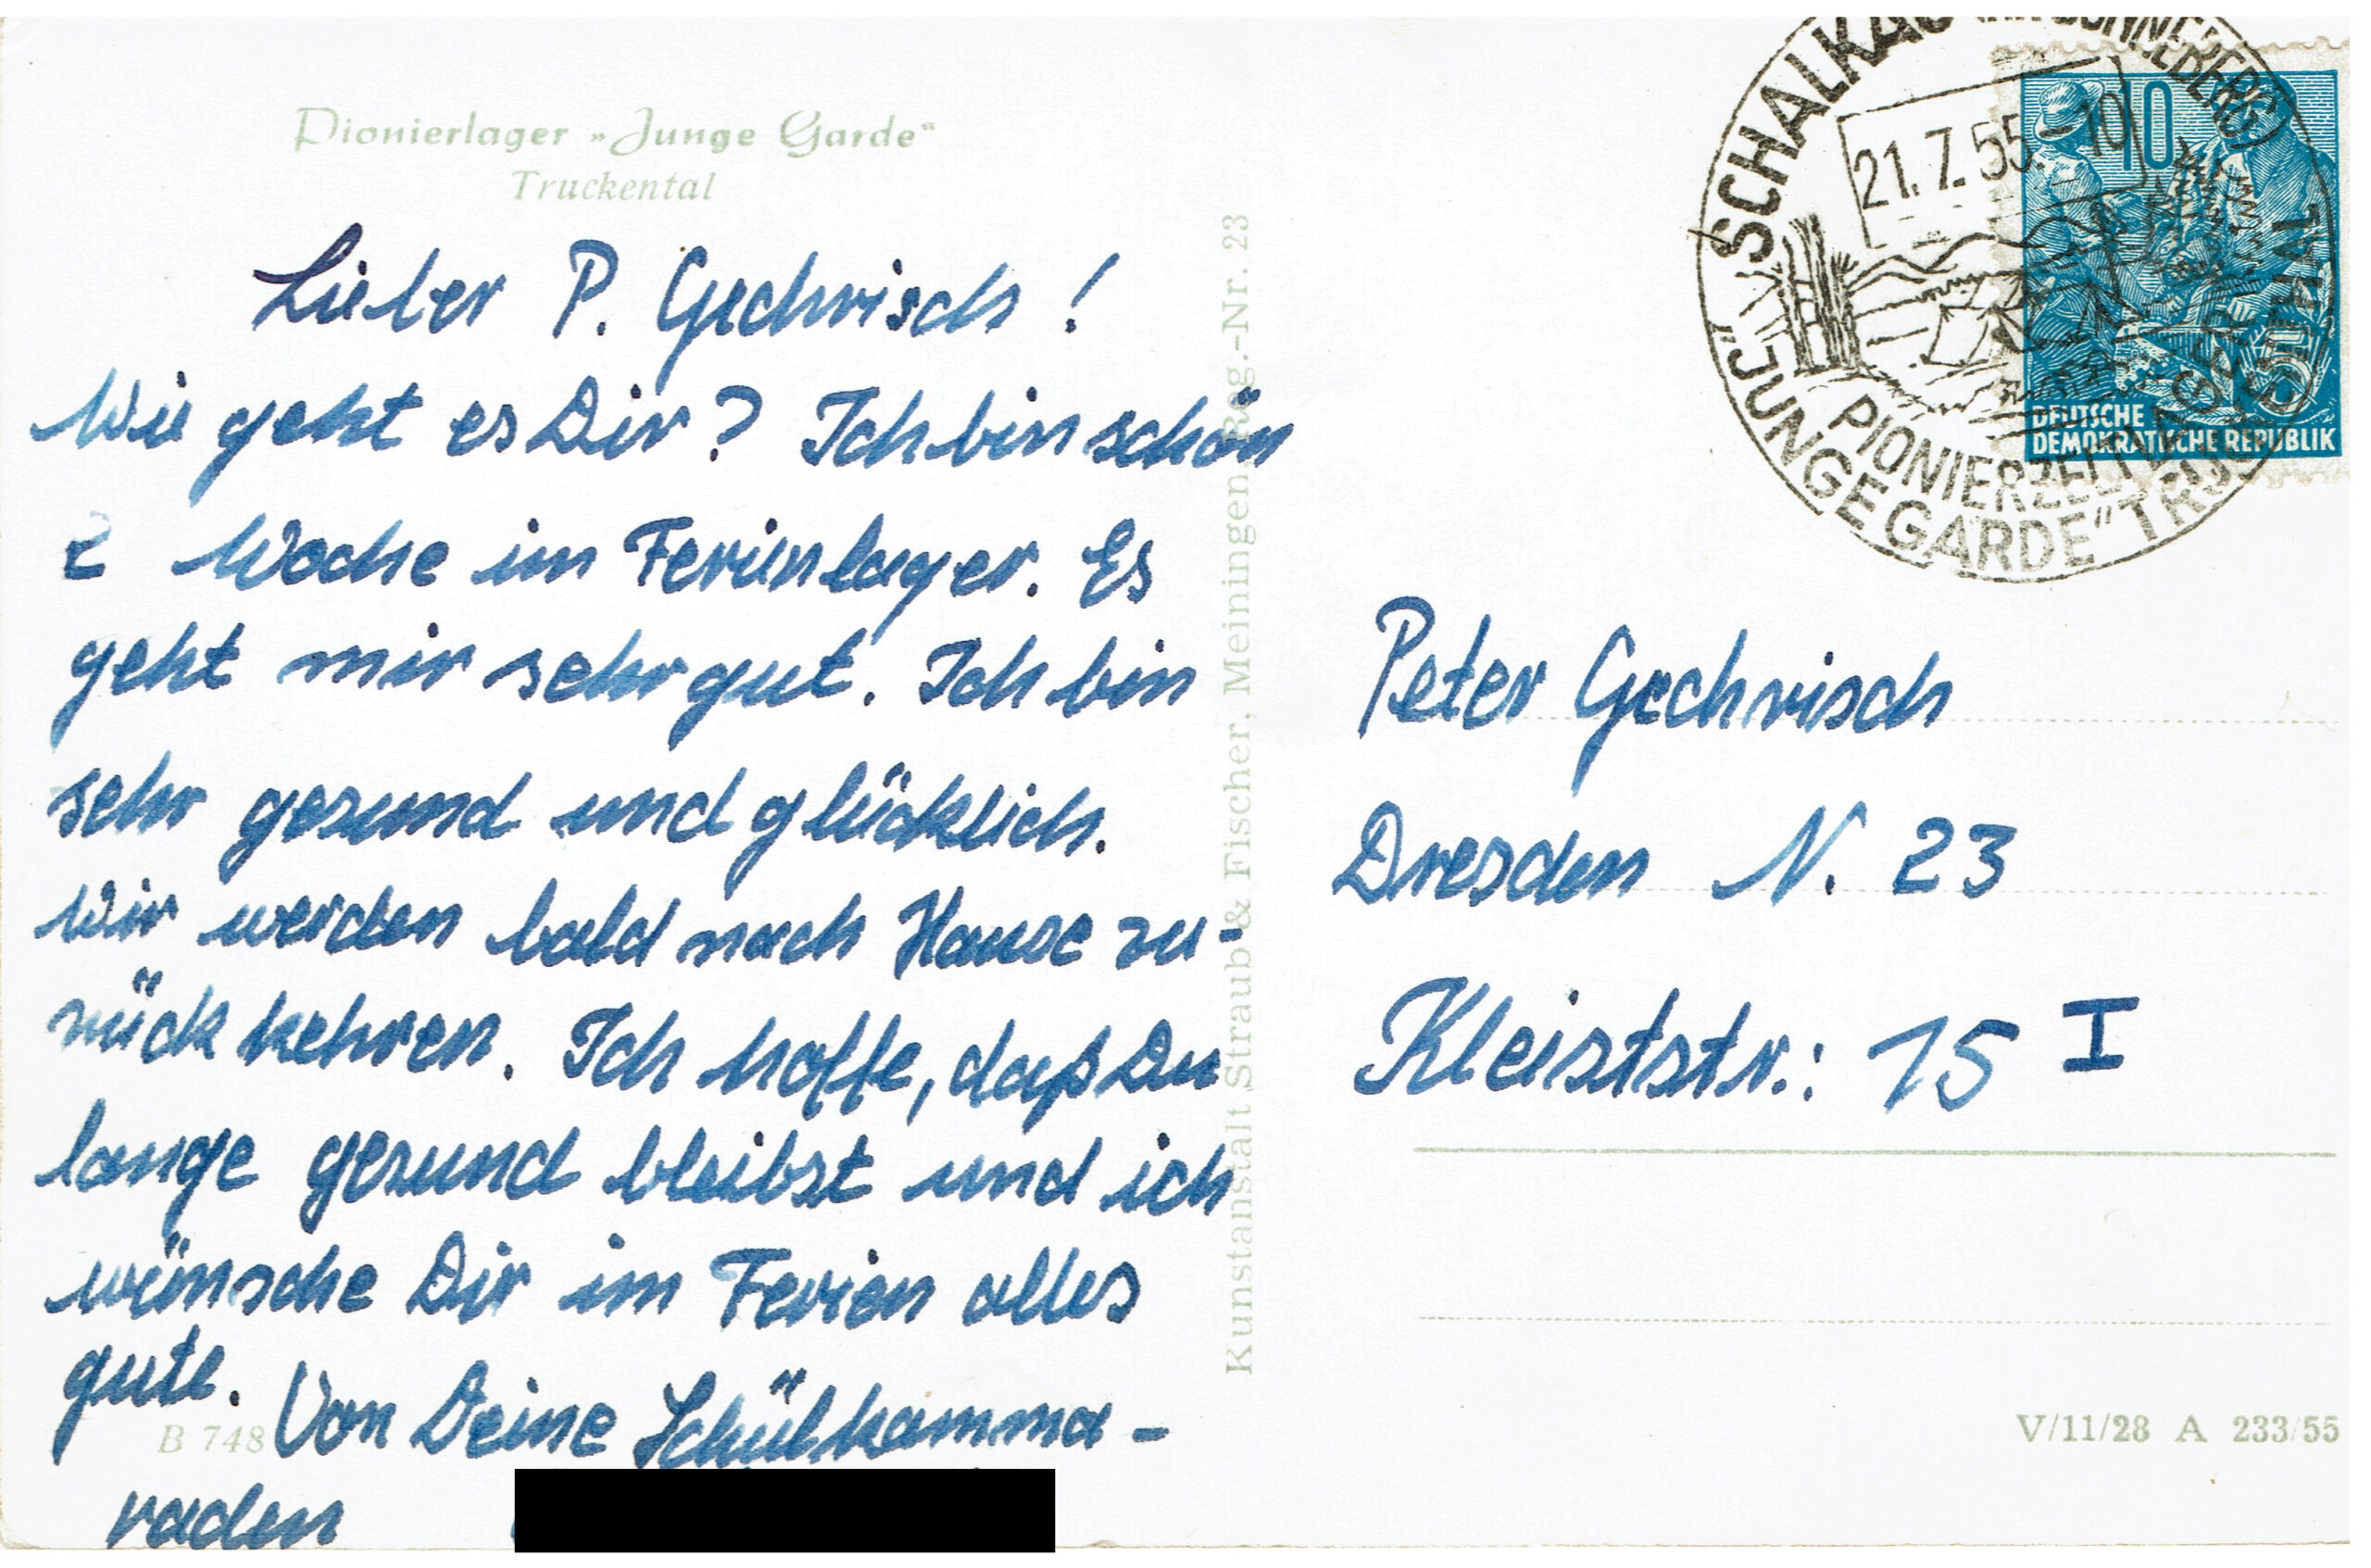 Pionierlager „Junge Garde“
Truckental
Lieber P. Gechrisch!
Wie geht es Dir? Ich bin schön
2 Woche im Ferienlager. Es
geht mir sehr gut. Ich bin
sehr gesund und glücklich.
Wir werden bald nach Hause zu-
rück kehren. Ich hoffe, daß Du
lange gesund bleibst und ich
wünsche Dir im Ferien alles
gute.
Von Deine Schülkamma-
raden
B 748
Kunstanstalt Straub & Fischer, Meiningen, Reg.-Nr. 23
SCHALKAU SONNEBERG)
21.7.55-10
PIONIERZELTLAGER
„JUNGE GARDE“
10
5
DEUTSCHE
DEMOKRATISCHE REPUBLIK
Peter Gechrisch
Dresden N. 23
Kleiststr.: 15 I
V/11/28 A 233/55